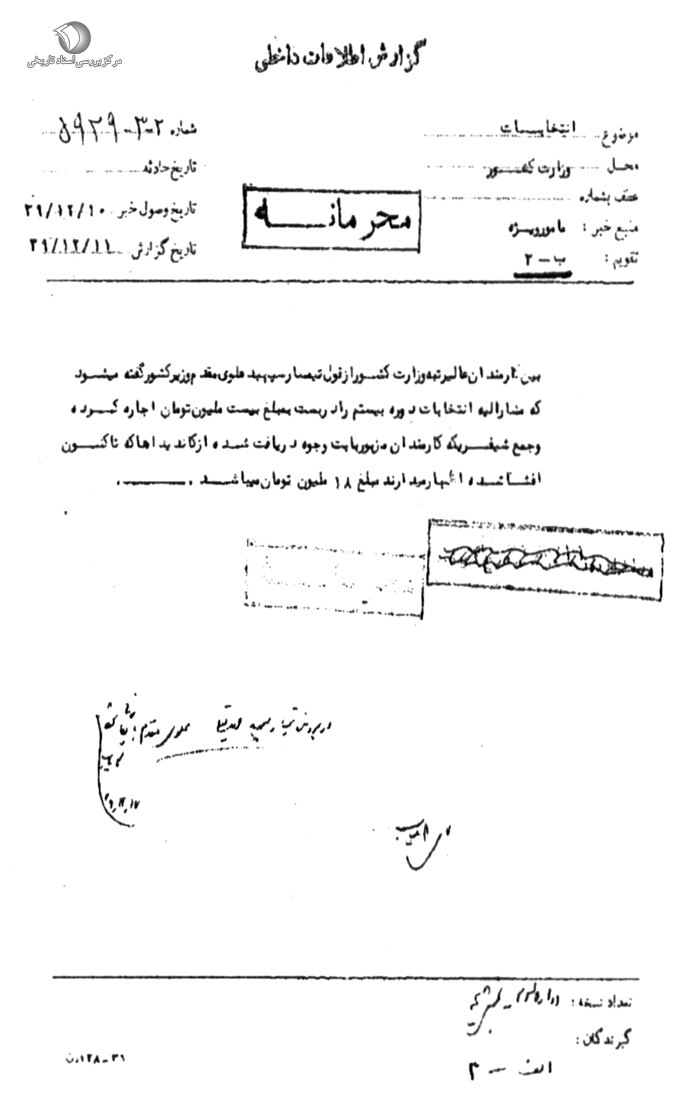 مرکز بررسی اسناد تاریخی
گزارش اطلاعات داخلی
موضوع انتخابات
شماره
محل وزارت کشور
تاریخ حادثه
عطف بشماره
تاریخ وصول خبر ۳۹/۱۲/۱۰
محرمانه
منبع خبر : مامور ویژه
تاریخ گزارش ۳۹/۱۲/۱۱
تقویم : ب – ۲
بین کارمندان عالیرتبه وزارت کشور از قول تیمسار سپهبد علوی مقدم وزیر کشور گفته میشود
که مشارالیه انتخابات دوره بیستم را دربست بمبلغ بیست ملیون تومان اجاره کرده
و جمع شیفریکه کارمندان مزبور بابت وجوه دریافت شده از کاندیداها که تاکنون
افشا شده اظهار میدارند مبلغ ۱۸ ملیون تومان میباشد .
در پرونده تیمسار سپهبد علوی مقدم
تعداد نسخه :
گیرندگان :
الف – ۲